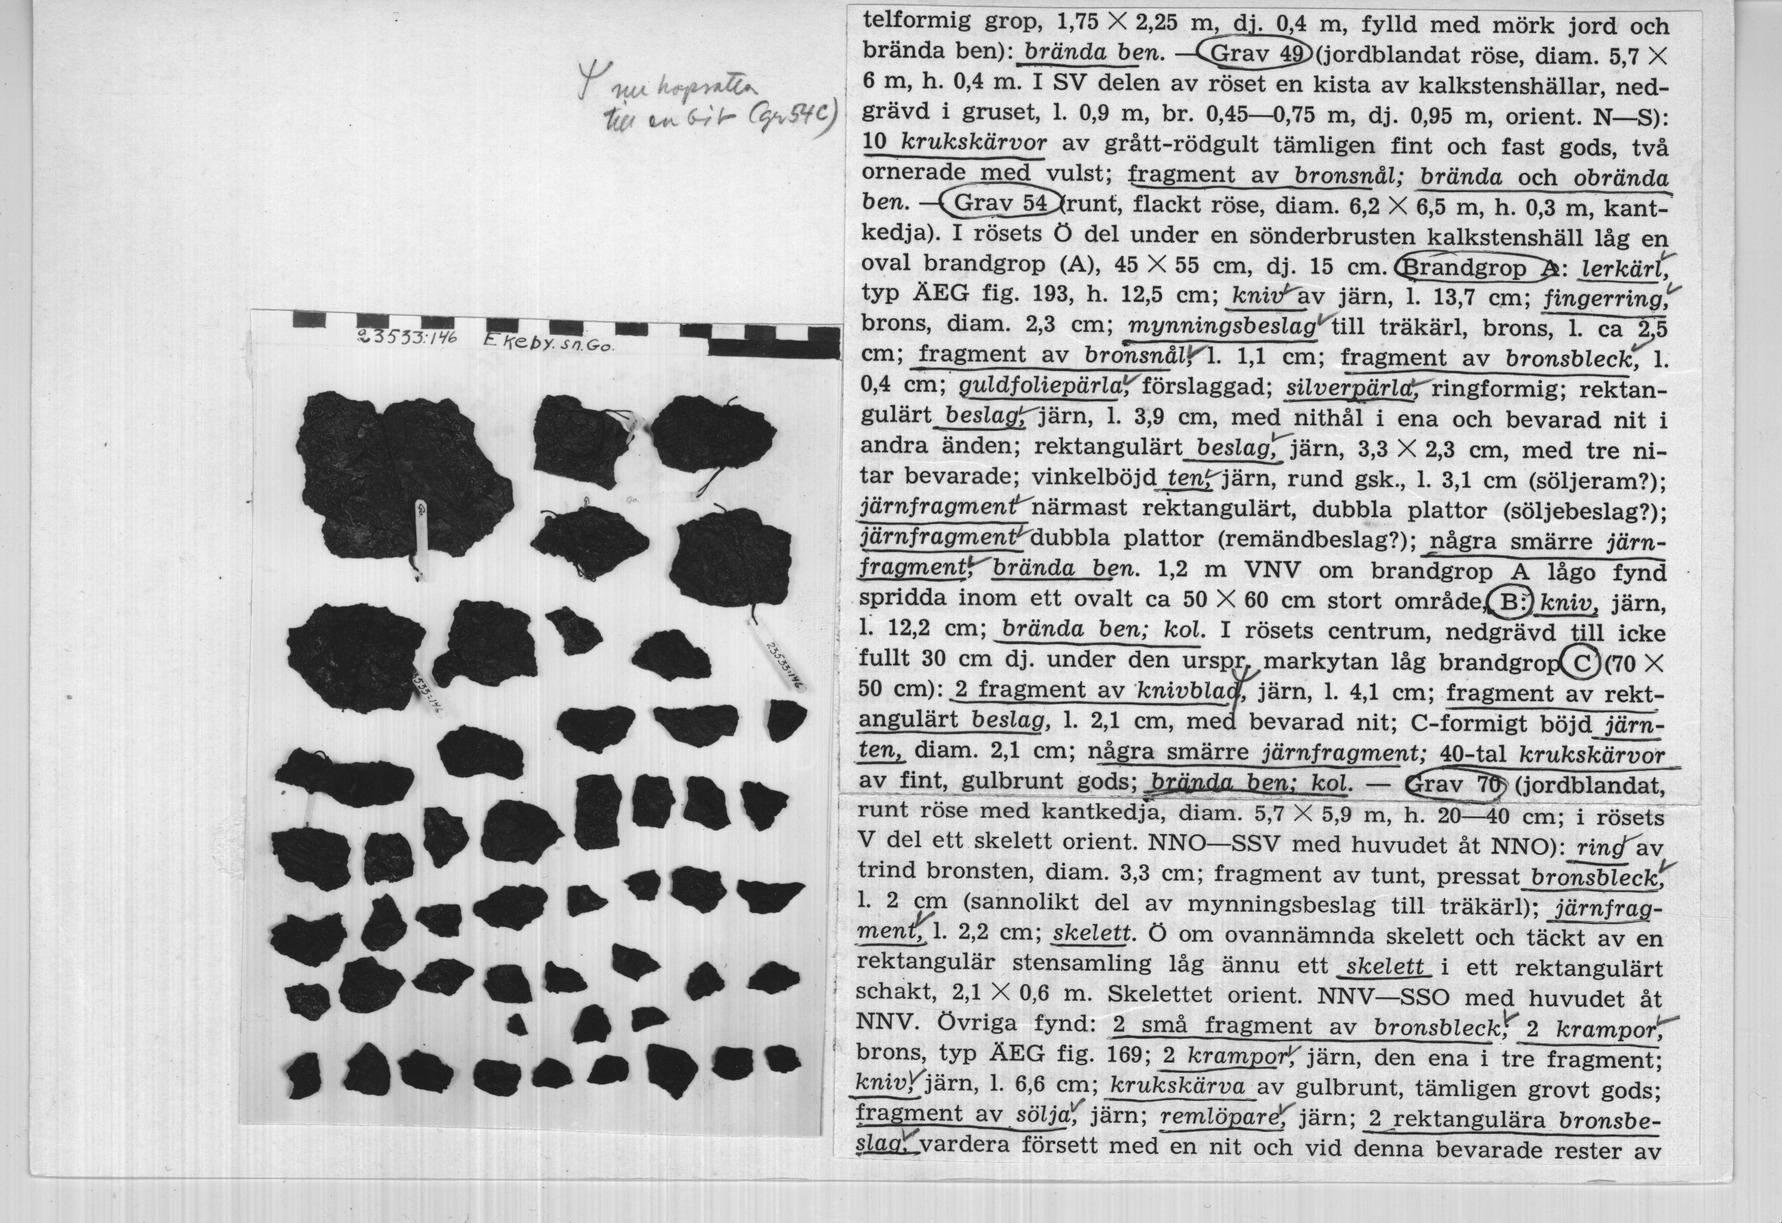 Ψ nu hopsatta
till en bit (gr 54C)
23533:146 Ekeby. sn. Go.
23533:146
23533:146
telformig grop, 1,75 × 2,25 m, dj. 0,4 m, fylld med mörk jord och
brända ben): brända ben. — Grav 49 (jordblandat röse, diam. 5,7 ×
6 m, h. 0,4 m. I SV delen av röset en kista av kalkstenshällar, ned-
grävd i gruset, l. 0,9 m, br. 0,45—0,75 m, dj. 0,95 m, orient. N—S):
10 krukskärvor av grått-rödgult tämligen fint och fast gods, två
ornerade med vulst; fragment av bronsnål; brända och obrända
ben. — Grav 54 (runt, flackt röse, diam. 6,2 × 6,5 m, h. 0,3 m, kant-
kedja). I rösets Ö del under en sönderbrusten kalkstenshäll låg en
oval brandgrop (A), 45 × 55 cm, dj. 15 cm. Brandgrop A: lerkärl,
typ ÄEG fig. 193, h. 12,5 cm; kniv av järn, l. 13,7 cm; fingerring,
brons, diam. 2,3 cm; mynningsbeslag till träkärl, brons, l. ca 2,5
cm; fragment av bronsnål, l. 1,1 cm; fragment av bronsbleck, l.
0,4 cm; guldfoliepärla, förslaggad; silverpärla, ringformig; rektan-
gulärt beslag, järn, l. 3,9 cm, med nithål i ena och bevarad nit i
andra änden; rektangulärt beslag, järn, 3,3 × 2,3 cm, med tre ni-
tar bevarade; vinkelböjd ten, järn, rund gsk., l. 3,1 cm (söljeram?);
järnfragment närmast rektangulärt, dubbla plattor (söljebeslag?);
järnfragment dubbla plattor (remändbeslag?); några smärre järn-
fragment; brända ben. 1,2 m VNV om brandgrop A lågo fynd
spridda inom ett ovalt ca 50 × 60 cm stort område, B: kniv, järn,
l. 12,2 cm; brända ben; kol. I rösets centrum, nedgrävd till icke
fullt 30 cm dj. under den urspr. markytan låg brandgrop C (70 ×
50 cm): 2 fragment av knivblad, järn, l. 4,1 cm; fragment av rekt-
angulärt beslag, l. 2,1 cm, med bevarad nit; C-formigt böjd järn-
ten, diam. 2,1 cm; några smärre järnfragment; 40-tal krukskärvor
av fint, gulbrunt gods; brända ben; kol. — Grav 70 (jordblandat,
runt röse med kantkedja, diam. 5,7 × 5,9 m, h. 20—40 cm; i rösets
V del ett skelett orient. NNO—SSV med huvudet åt NNO): ring av
trind bronsten, diam. 3,3 cm; fragment av tunt, pressat bronsbleck,
l. 2 cm (sannolikt del av mynningsbeslag till träkärl); järnfrag-
ment, l. 2,2 cm; skelett. Ö om ovannämnda skelett och täckt av en
rektangulär stensamling låg ännu ett skelett i ett rektangulärt
schakt, 2,1 × 0,6 m. Skelettet orient. NNV—SSO med huvudet åt
NNV. Övriga fynd: 2 små fragment av bronsbleck; 2 krampor,
brons, typ ÄEG fig. 169; 2 krampor, järn, den ena i tre fragment;
kniv, järn, l. 6,6 cm; krukskärva av gulbrunt, tämligen grovt gods;
fragment av sölja, järn; remlöpare, järn; 2 rektangulära bronsbe-
slag, vardera försett med en nit och vid denna bevarade rester av